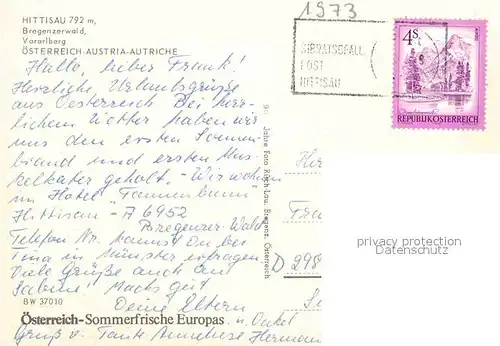 HITTISAU 792 m,
Bregenzerwald,
Vorarlberg
ÖSTERREICH-AUSTRIA-AUTRICHE
1973
SIBRATSGFÄLL
POST
HITTISAU
4 S
REPUBLIK ÖSTERREICH
Hallo, lieber Frank!
Herzliche Urlaubsgrüße
aus Oesterreich Bei herr-
lichem Wetter haben wir
uns den ersten Sonnen-
brand und ersten Mus-
kelkater geholt. - Wir wohnen
im Hotel "Tannenbaum
Hittisau - A 6952
Bregenzer Wald
Telefon Nr. kannst Du bei
Tina in Münster erfragen
Viele Grüße auch an
Sabine! Machs gut
Deine Eltern
u. Onkel
Gruß v. Tante Anneliese Hermann
BW 37010
Österreich-Sommerfrische Europas
Jahre Foto Risch-Lau, Bregenz, Österreich
D 298
privacy protection
Datenschutz